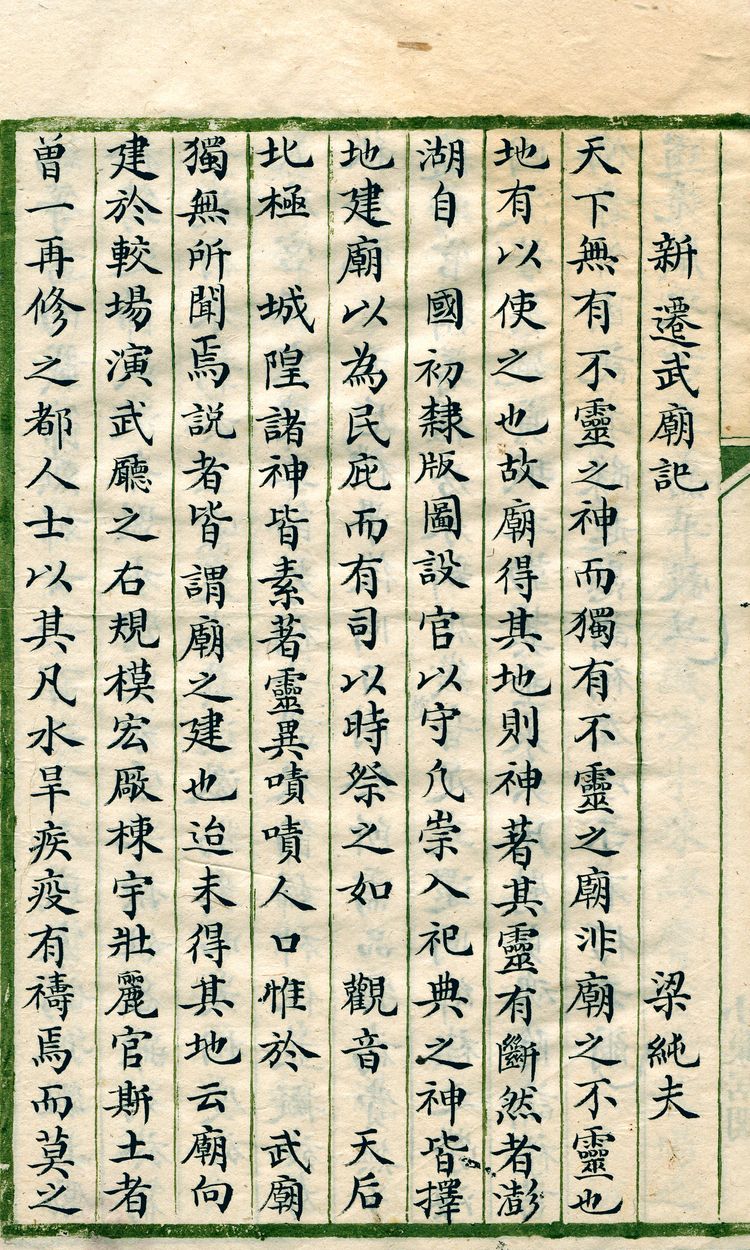 新遷武廟記　梁純夫
天下無有不靈之神而獨有不靈之廟非廟之不靈也
地有以使之也故廟得其地則神著其靈有斷然者澎
湖自　國初隸版圖設官以守凡崇入祀典之神皆擇
地建廟以為民庇而有司以時祭之如　觀音　天后
北極　城隍諸神皆素著靈異嘖嘖人口惟於　武廟
獨無所聞焉説者皆謂廟之建也迨未得其地云廟向
建於較場演武廳之右規模宏厰棟宇壯麗官斯土者
曾一再修之都人士以其凡水旱疾疫有禱焉而莫之